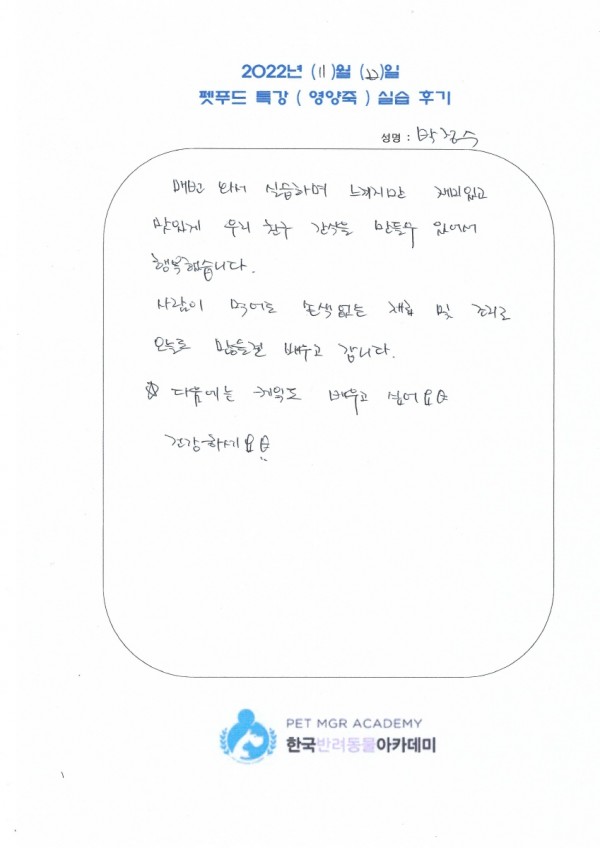 2022년 (11)월 (22)일
펫푸드 특강 ( 영양죽 ) 실습 후기
성명 : 박
매번 와서 실습하며 느끼지만 재미있고
맛있게 우리 친구 간식을 만들수 있어서
행복했습니다.
사람이 먹어도 손색없는 재료 및 조리로
오늘도 많은걸 배우고 갑니다.
☆ 다음에는 케익도 배우고 싶어요
건강하세요
PET MGR ACADEMY
한국반려동물아카데미